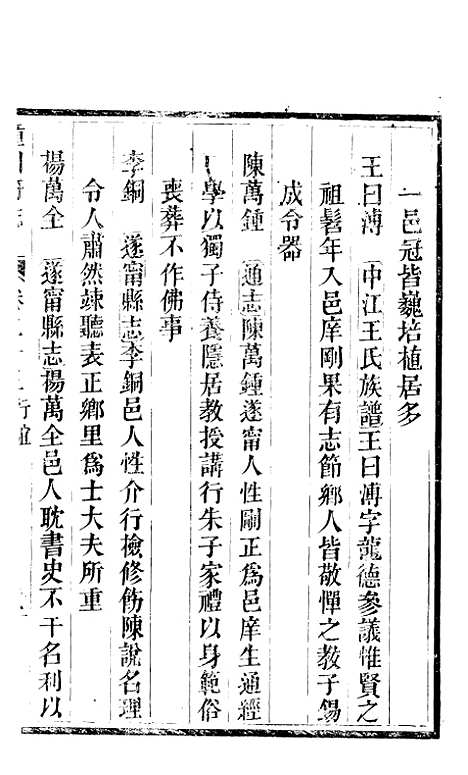 一邑冠皆巍培植居多
王曰溥 中江王氏族譜王曰溥字龍德參議惟賢之
祖髫年入邑庠剛果有志節鄉人皆敬憚之教子錫
成令器
陳萬鍾 通志陳萬鍾遂甯人性嗣正為邑庠生通經
學以獨子侍養隱居教授講行朱子家禮以身範俗
喪葬不作佛事
李銅 遂甯縣志李銅邑人性介行檢修飭陳說名理
令人肅然竦聽表正鄉里為士大夫所重
楊萬全 遂甯縣志楊萬全邑人耽書史不干名利以